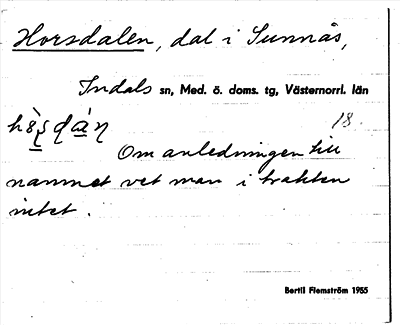 Horsdalen, dal i Sunnås,
Indals sn, Med. ö. doms. tg, Västernorrl. län
18.
Om anledningen till
namnet vet man i trakten
intet.
Bertil Flemström 1955